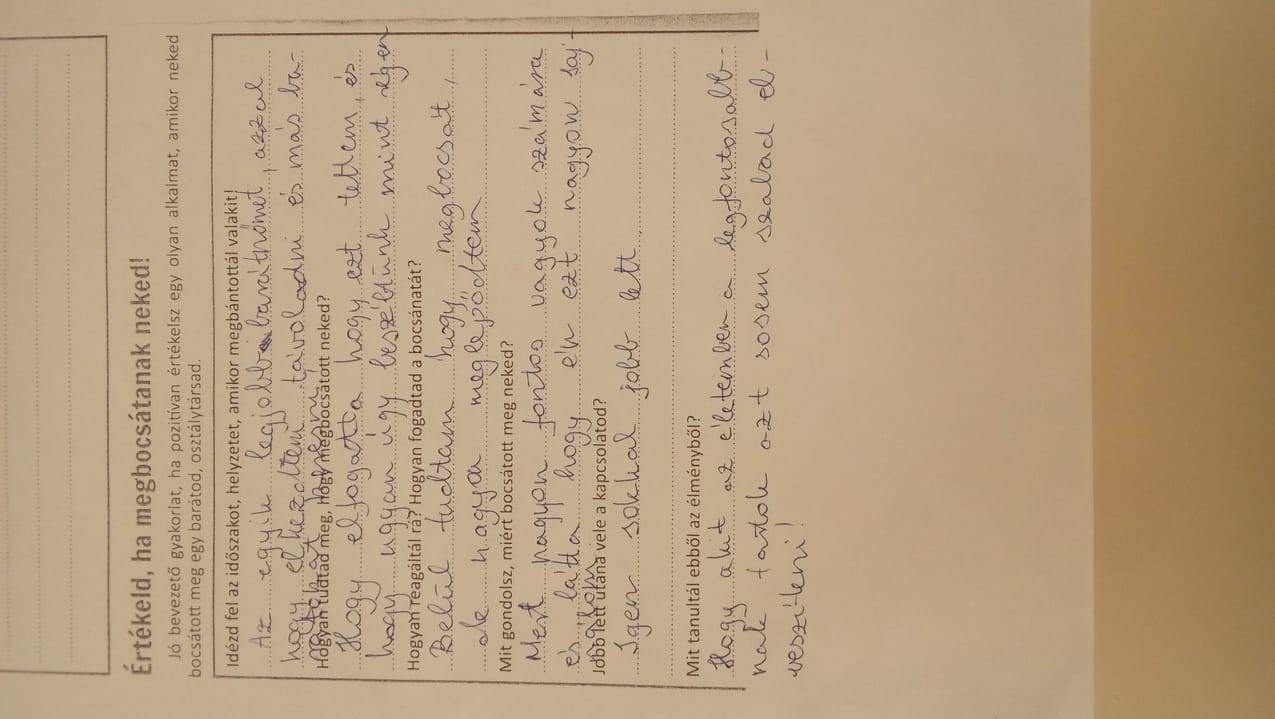 Értékeld, ha megbocsátanak neked!
Jó bevezető gyakorlat, ha pozitívan értékelsz egy olyan alkalmat, amikor neked
bocsátott meg egy barátod, osztálytársad.
Idézd fel az időszakot, helyzetet, amikor megbántottál valakit!
Az egyik legjobb barátnőmet, azzal
hogy elkezdtem távolodni és más ba-
Hogyan tudtad meg, hogy megbocsátott neked?
Hogy elfogatta hogy ezt tettem, és
hogy ugyan úgy beszéltünk mint régen
Hogyan reagáltál rá? Hogyan fogadtad a bocsánatát?
Belül tudtam hogy, megbocsát,
de nagyon meglepődtem
Mit gondolsz, miért bocsátott meg neked?
Mert nagyon fontos vagyok számára
és látta, hogy én ezt nagyon saj-
nálom
Jobb lett utána vele a kapcsolatod?
Igen sokkal jobb lett
Mit tanultál ebből az élményből?
Hogy akit az életemben a legfontosabb-
nak tartok azt sosem szabad el-
veszíteni!